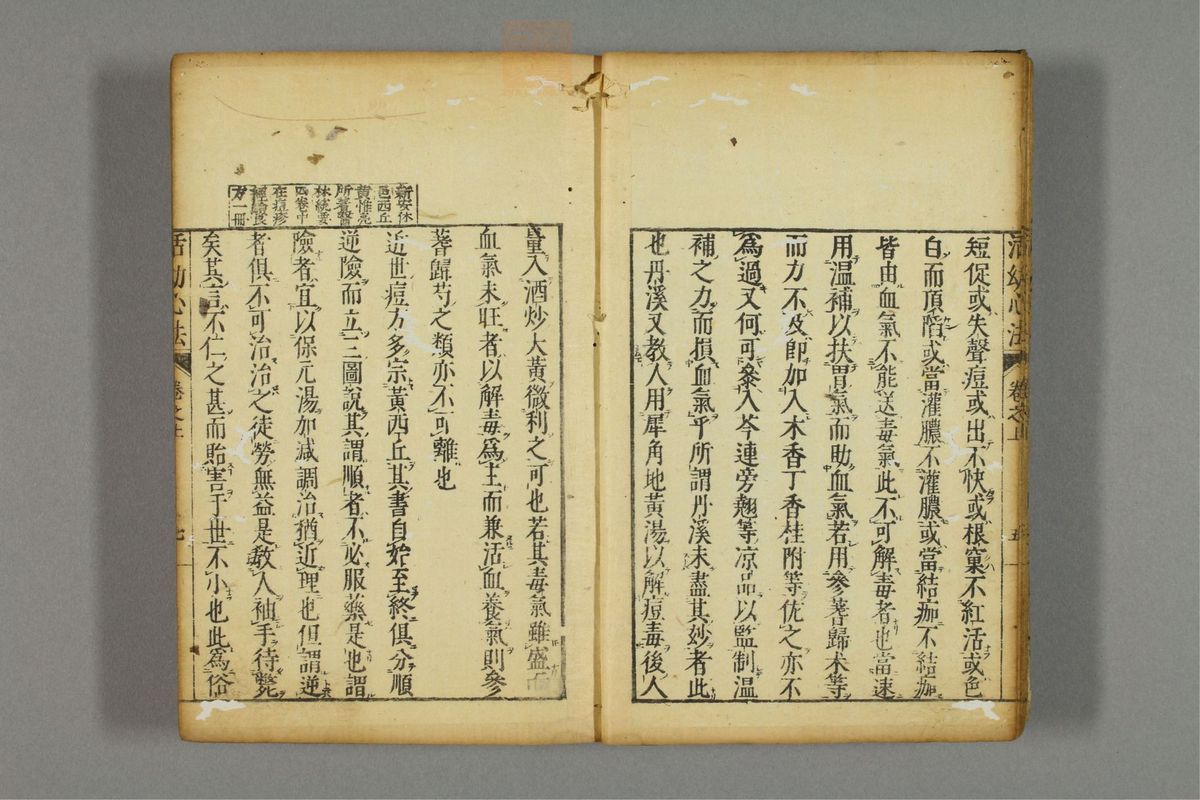 活幼心法
卷之
五
短促或失聲痘或出不快或根窠不紅活或色
白而頂陷或當灌膿不灌膿或當結痂不結痂
皆由血氣不能送毒氣此不可解毒者也當速
用溫補以扶胃氣而助血氣若用參蓍歸朮等
而力不及即加入木香丁香桂附等佐之亦不
為過又何可參入芩連旁翹等凉品以監制溫
補之力而損血氣乎所謂丹溪未盡其妙者此
也丹溪又教人用犀角地黃湯以解痘毒後人
量入酒炒大黃微利之可也若其毒氣雖盛而
血氣未旺者以解毒爲主而兼活血養氣則參
蓍歸芍之類亦不可離也
近世痘方多宗黃西丘其書自始至終俱分順
逆險而立三圖說其謂順者不必服藥是也謂
險者宜以保元湯加減調治猶近理也但謂逆
者俱不可治治之徒勞無益是教人袖手待斃
矣其言不仁之甚而貽害于世不小也此爲俗
新安休
邑西丘
黃惟亮
所著醫
林統要
四卷中
在痘疹
經驗良
方一冊
活幼心法
卷之上
七